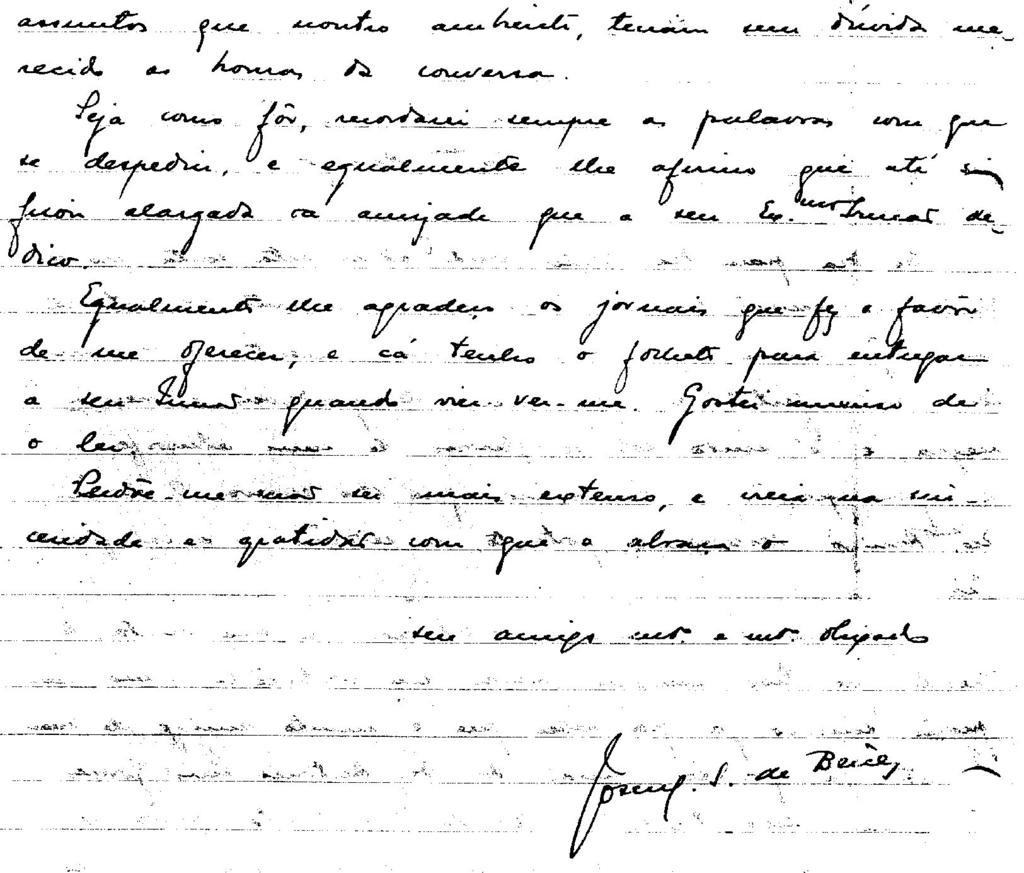 assuntos que noutro ambiente, teriam sem dúvida me-
recido as honras da conversa.
Seja como fôr, recordarei sempre as palavras com que
se despediu, e egualmente lhe afirmo que até si
ficou alargada a amizade que a seu Ex.mo Irmão de-
dico.
Egualmente lhe agradeço os jornais que fez o favôr
de me oferecer, e cá tenho o folheto para entregar
a seu Irmão quando vier ver-me. Gostei imenso de
o ler.
Perdôe-me não ser mais extenso, e creia na sin-
ceridade e gratidão com que o abraça o
seu amigo mt. e mt. obrigado
S. de